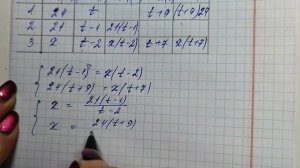 1 24 t t+9 (t+9)24
2 21 t-1 21(t-1)
3 x t-2 x(t-2) t+7 x(t+7)
21(t-1) = x(t-2)
24(t+9) = x(t+7)
x = 21(t-1)/t-2
x = 24(t+9)